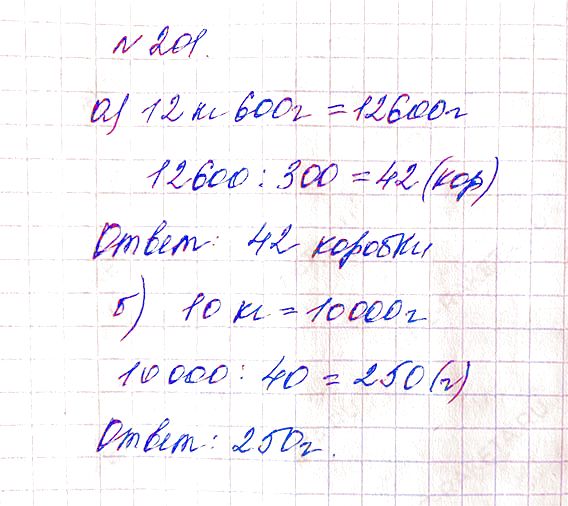 № 201.
а) 12 кг 600г = 12600г
12600 : 300 = 42 (кор)
Ответ: 42 коробки
б) 10 кг = 10000г
10 000 : 40 = 250 (г)
Ответ: 250г.